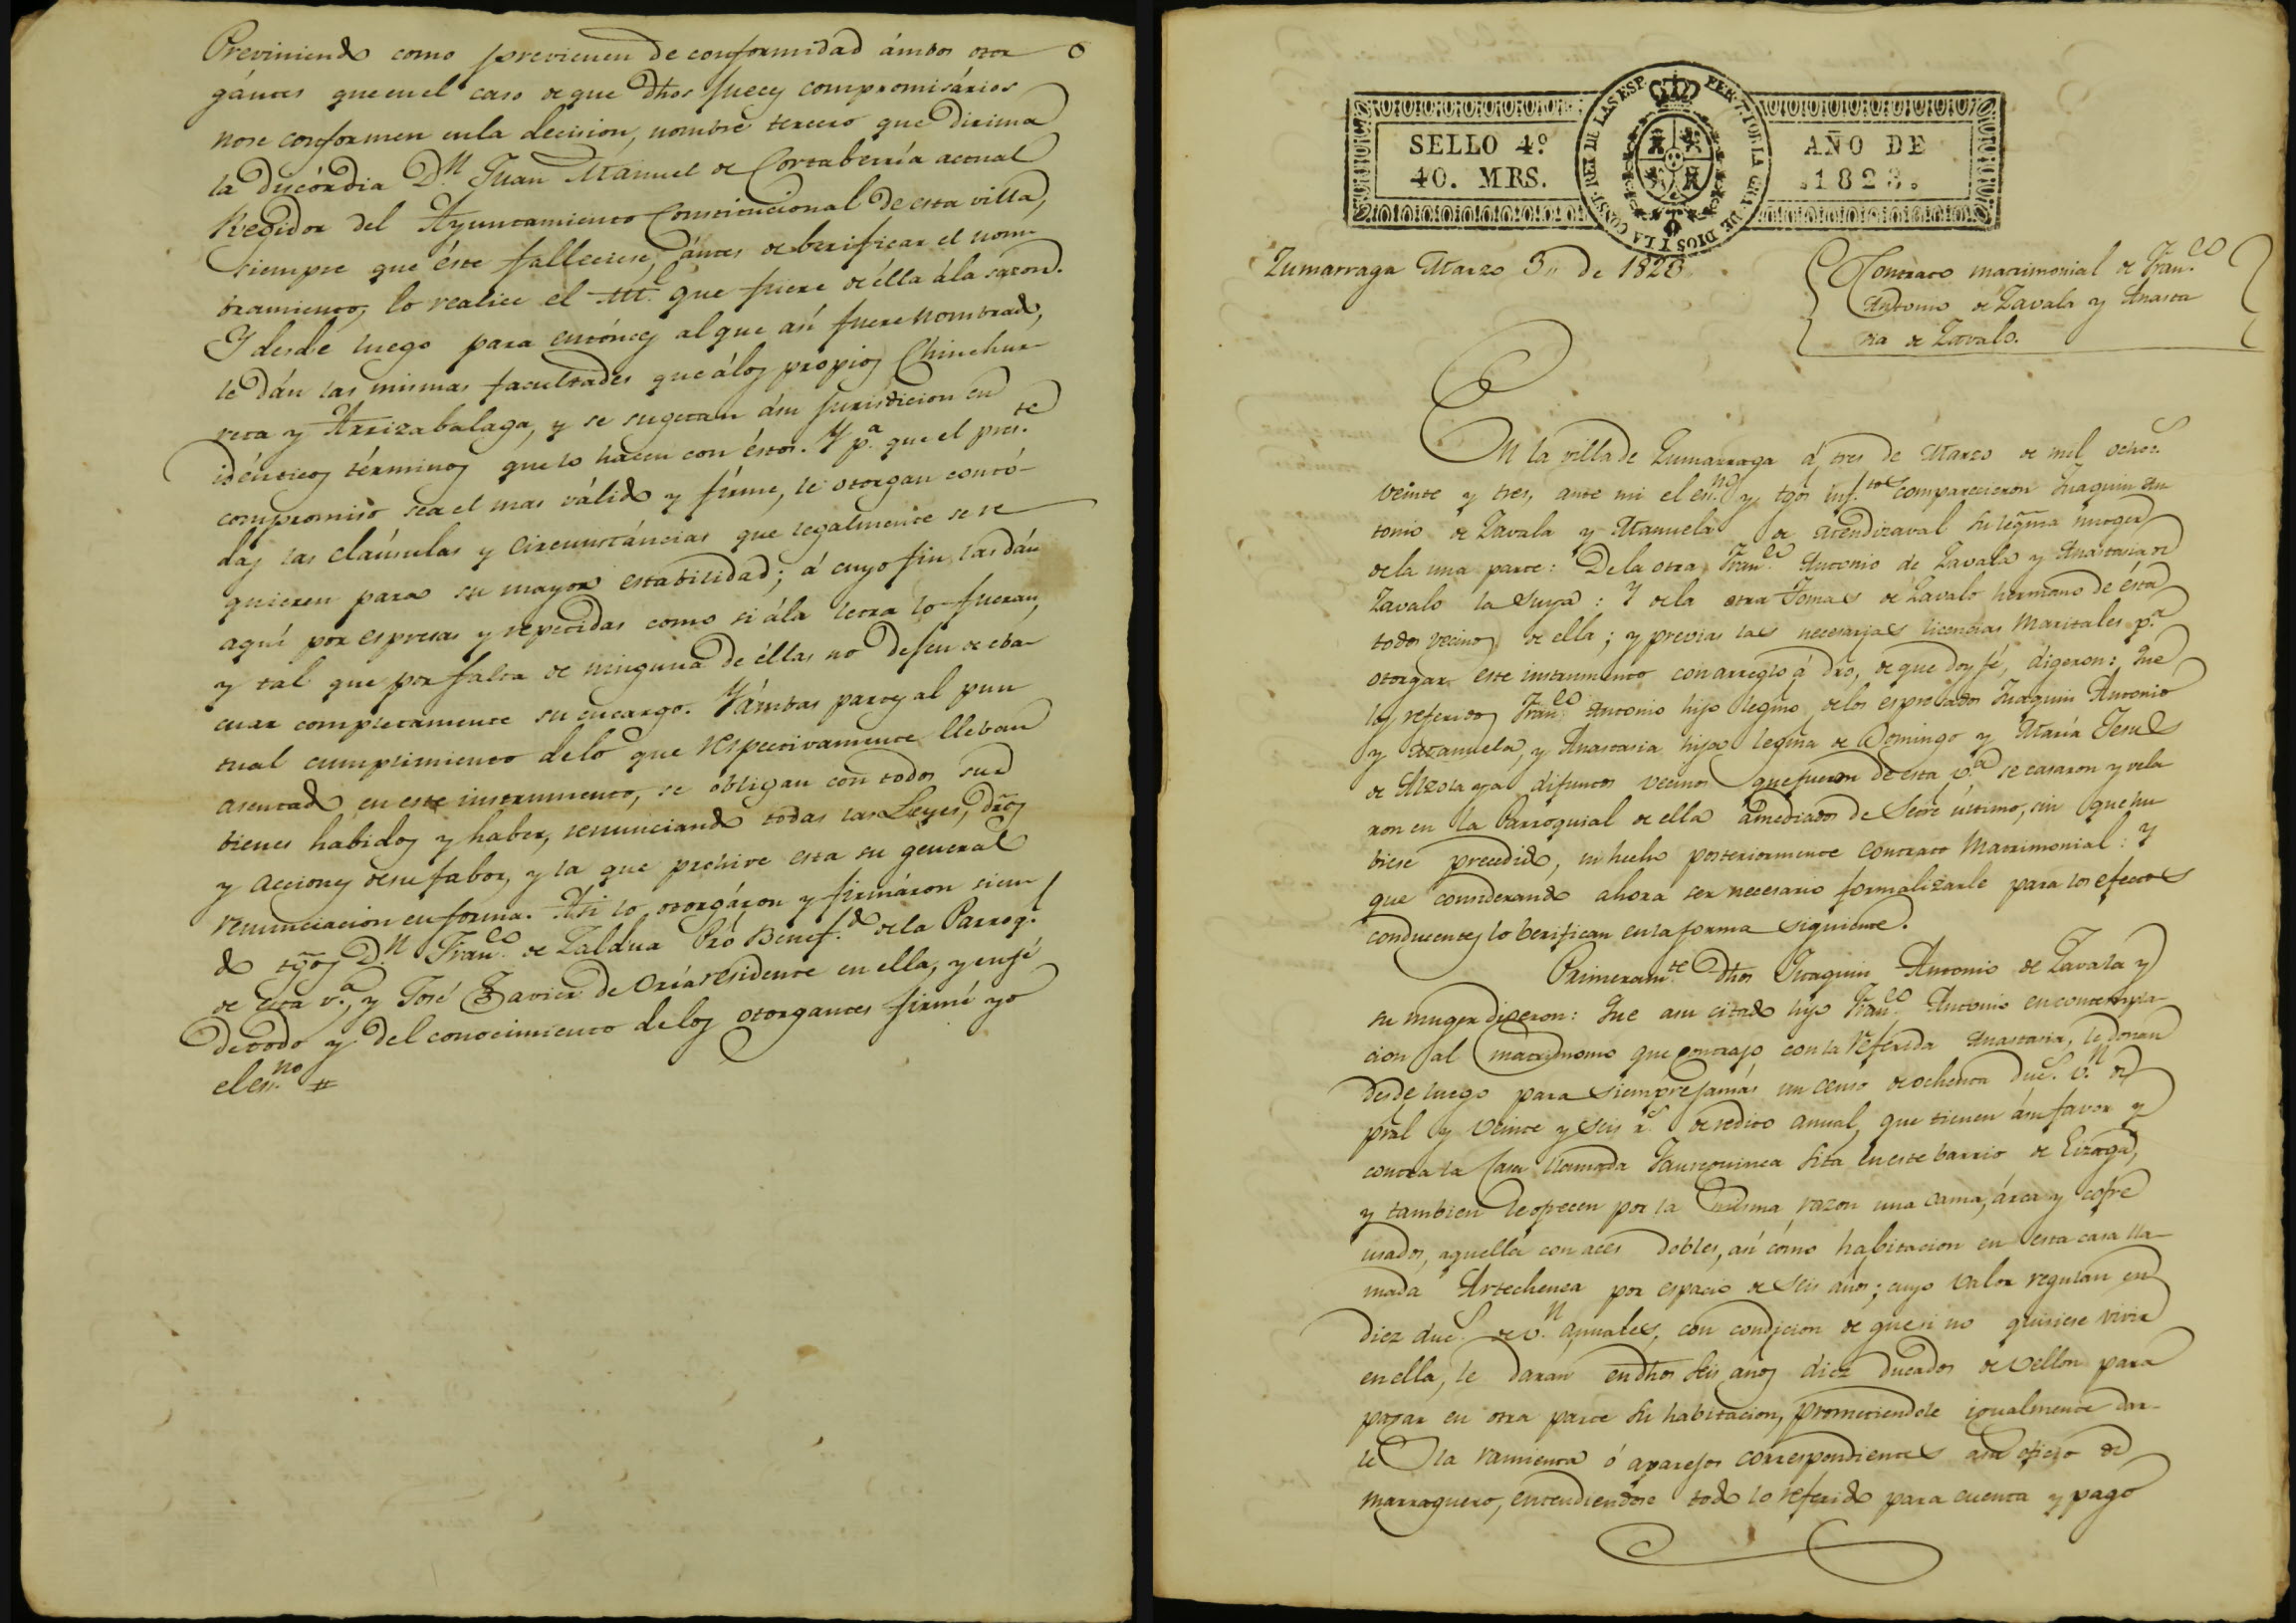 Previniendo como previenen de conformidad ámbos otor
gántes que en el caso de que dhos Jueces compromisários
no se conformen en la decision, nombre tercero que dirima
la discórdia D.n Juan Manuel de Cortaberría actual
Regidor del Ayuntamiento Constitucional de esta villa,
siempre que éste falleciese, ántes de berificar el nom-
bramiento, lo realice el que fuere de élla á la sazon.
Y desde luego para entónces al que así fuere nombrado,
le dán las mismas facultades que á los propios Chinchur-
reta y Arrizabalaga, y se sugetan á su jurisdicion en
idénticos términos que lo hacen con éstos. Y p.a que el pres.te
compromiso sea el mas válido y firme, le otorgan con tó-
das las claúsulas y circunstáncias que legalmente se re
quieren para su mayor estabilidad; á cuyo fin las dán
aquí por espresas y repetidas como si á la letra lo fueran,
y tal que por falta de ninguna de éllas no dejen de eba-
cuar completamente su encargo. Y ámbas partes al pun
tual cumplimiento de lo que respectivamente lleban
asentado en este instrumento, se obligan con todos sus
bienes habidos y haber, renunciando todas las Leyes, dros
y acciones de su fabor, y la que prohive esta su general
renunciacion en forma. Asi lo otorgáron y firmáron sien
do tgos D.n Fran.co de Zaldua Pró Benef.do de la Parroq.l
de esta v.a, y José Xavier de Oría residente en ella, y en fé
de todo y del conocimiento de los otorgantes firmé yo
el esn.no #
SELLO 4º
40. MRS.
AÑO DE
1823.
POR LA G. DE DIOS Y LA CONST. REY DE LAS ESP.
Zumarraga Marzo 3,, de 1823.
Contrato matrimonial de Fran.co
Antonio de Zavala y Anasta
sia de Zavalo.
En la villa de Zumarraga á tres de Marzo de mil ochos.
veinte y tres, ante mi el esn.no y tgos inf.tos comparecieron Juaquin An
tonio de Zavala y Manuela de Mendizaval su legma muger
de la una parte: De la otra Fran.co Antonio de Zavala y Anastasia de
Zavalo la suya: Y de la otra Tomas de Zavalo hermano de ésta
todos vecinos de ella; y previas las necesarias licencias Maritales p.a
otorgar este instrumento con arreglo á dro, de que doy fé, digeron: Que
los referidos Fran.co Antonio hijo legmo de los espresados Juaquin Antonio
y Manuela, y Anastasia hija legma de Domingo y María Jesus
de Alzola ya difuntos vecinos que fueron de esta v.a se casaron y vela
ron en la Parroquial de ella á mediados de Sete último, sin que hu
biese precedido, ni hecho posteriormente contrato Matrimonial: Y
que considerando ahora ser necesario formalizarle para los efectos
conducentes lo berifican en la forma siguiente.
Primeram.te dhos Juaquin Antonio de Zavala y
su muger digeron: Que a su citado hijo Fran.co Antonio en contempla
cion al matrimonio que contrajo con la referida Anastasia, le donan
desde luego para siempre jamás un censo de ochenta duc.s v.n de
pral y veinte y seis r.s de redito anual, que tienen á su favor y
contra la Casa llamada Jausequinea sita en este barrio de Eizaga,
y tambien le ofrecen por la misma razon una cama, árca y cofre
usados, aquella con aces dobles, así cómo habitacion en esta casa lla-
mada Artechenea por espacio de seis años; cuyo valor regulan en
diez duc.s de v.n anuales, con condicion de que si no quisiese vivir
en ella, le daran en dhos seis años diez ducados de vellon para
pagar en otra parte su habitacion, prometiendole igualmente dar-
le la ramienta ó aparejos correspondientes a su oficio de
marraguero, entendiendose todo lo referido para cuenta y pago